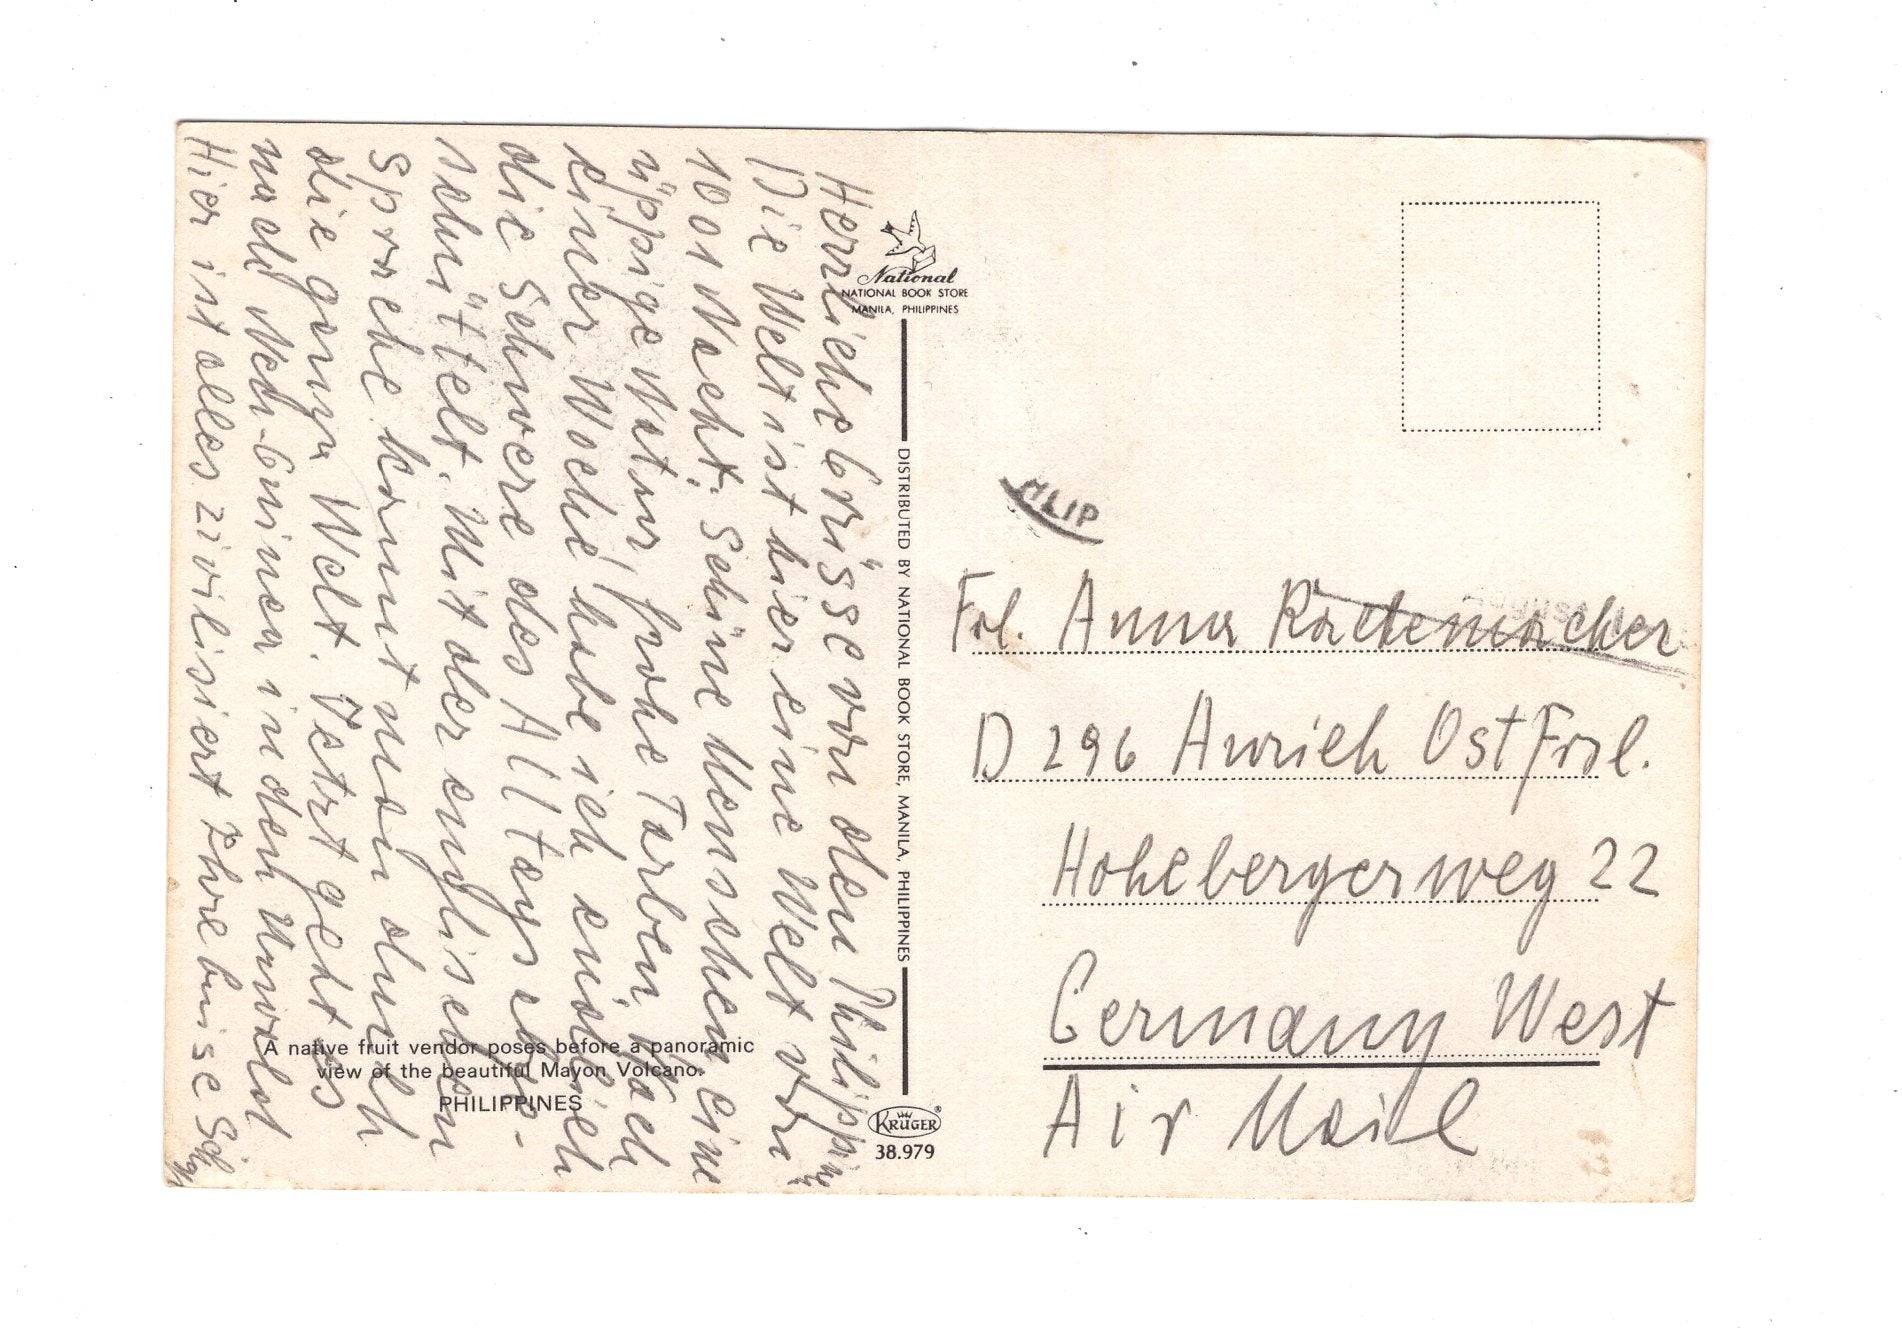 Herrliche Grüsse von den Philippinen
Die Welt ist hier eine Welt von
1001 Nacht. Schöne Menschen, eine
üppige Natur, frohe Farben. Nach
einer Woche habe ich endlich
die Schwere des Alltags abge-
schüttelt. Mit der englischen
Sprache kommt man durch
die ganze Welt. Jetzt geht es
nach Neu-Guinea in den Urwald
Hier ist alles zivilisiert Ihre Luise
A native fruit vendor poses before a panoramic
view of the beautiful Mayon Volcano.
PHILIPPINES
National
NATIONAL BOOK STORE
MANILA, PHILIPPINES
DISTRIBUTED BY NATIONAL BOOK STORE, MANILA, PHILIPPINES
KRÜGER®
38.979
Frl. Anna Rademacher
D 296 Aurich Ostfrsl.
Hohebergerweg 22
Germany West
Air Mail